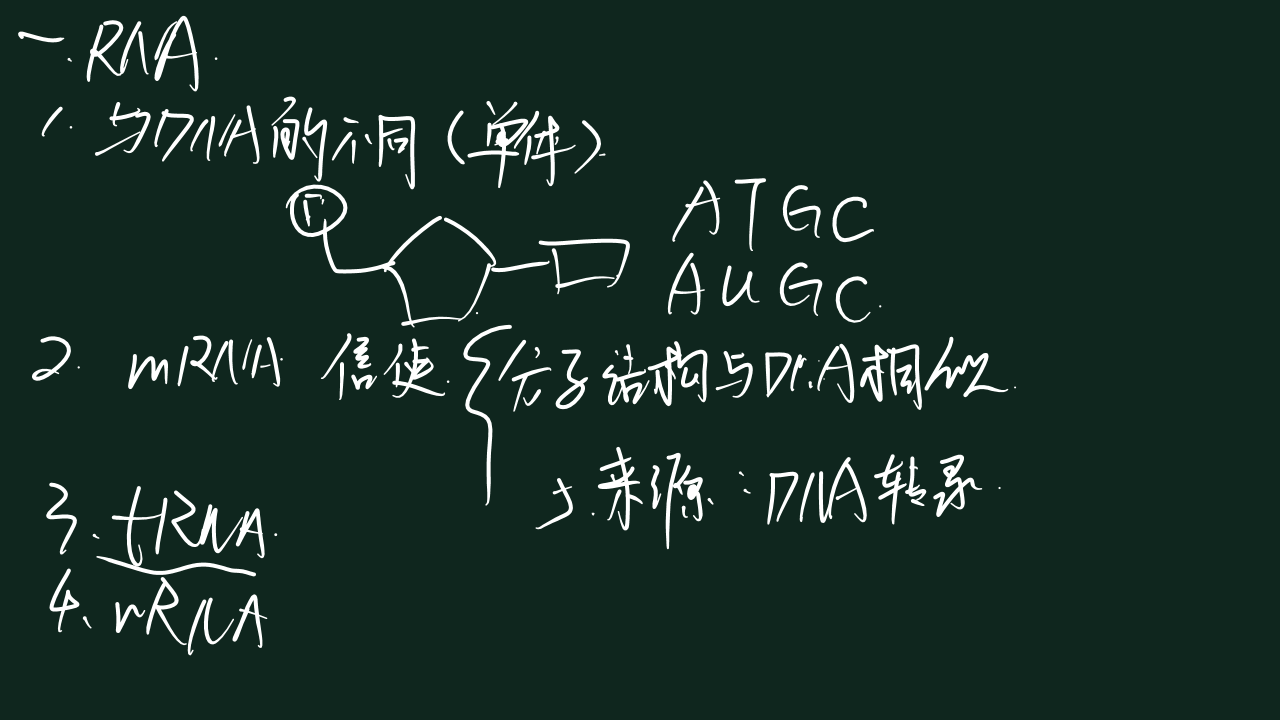 一. RNA.
1. 与DNA的不同(单体).
P
ATGC
AUGC.
2. mRNA 信使. { 分子结构与DNA相似.
5. 来源: DNA转录.
3. tRNA.
4、rRNA